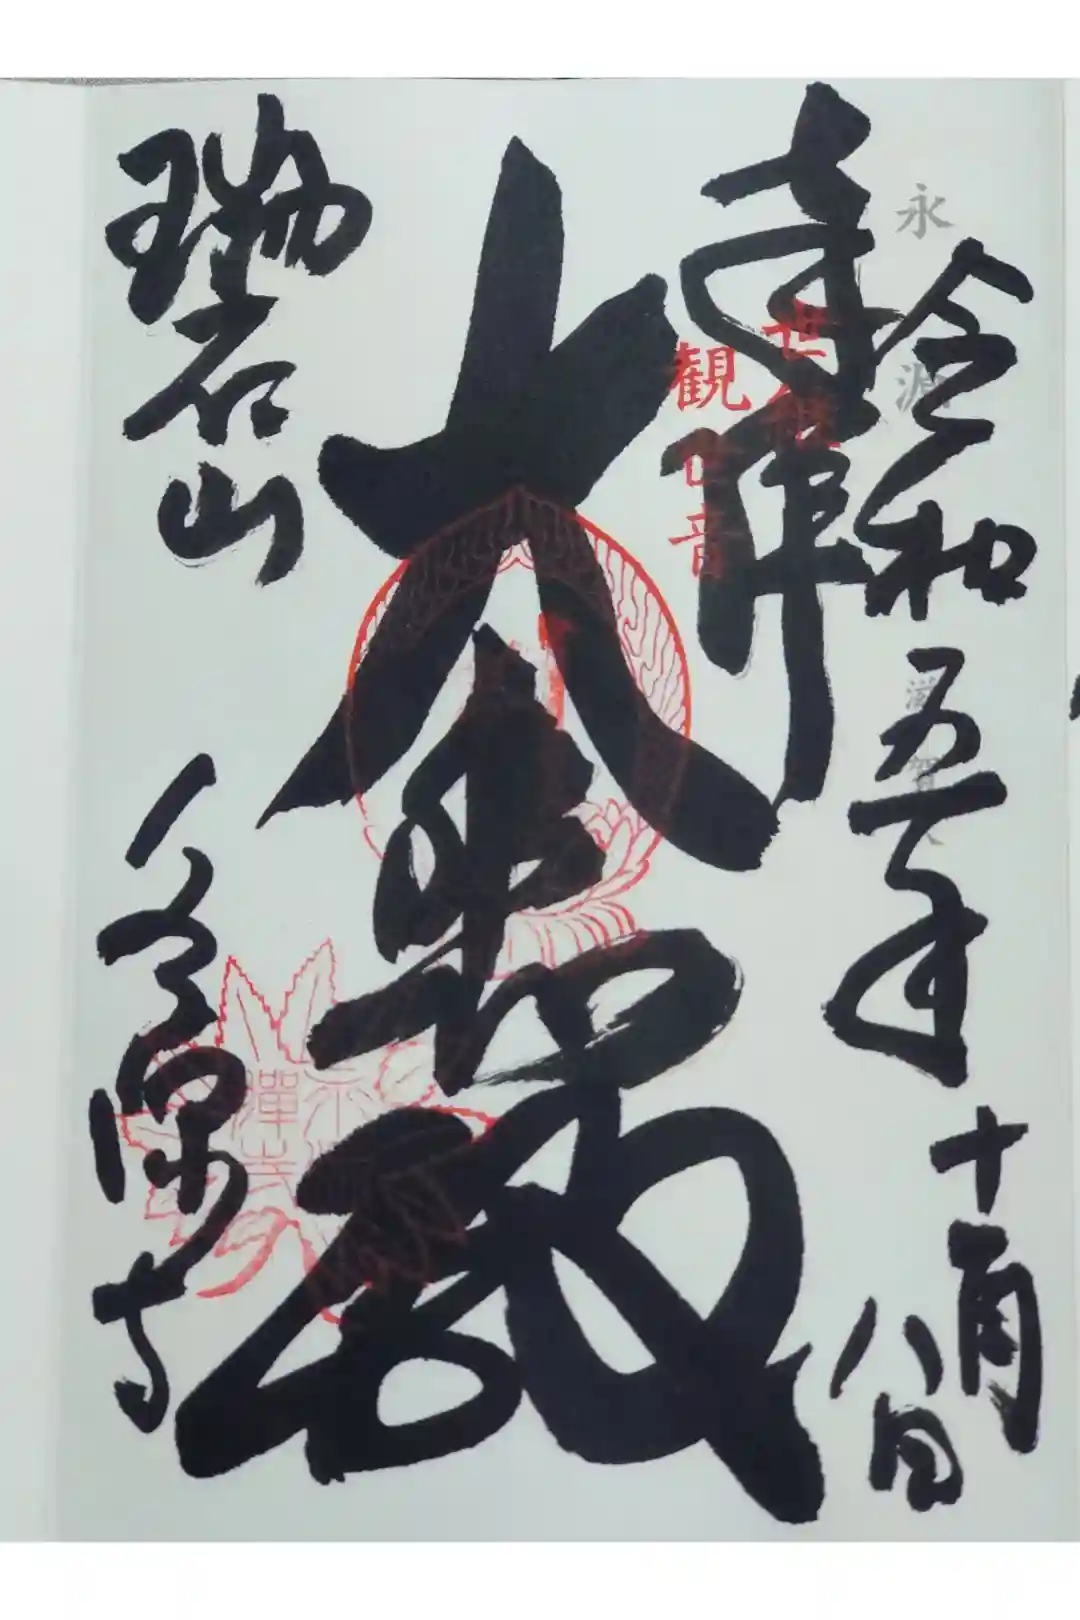 永源
滋賀
令和五年十一月八日
奉拝
世継
観世音
大悲殿
瑞石山
永源寺
永源
禪寺